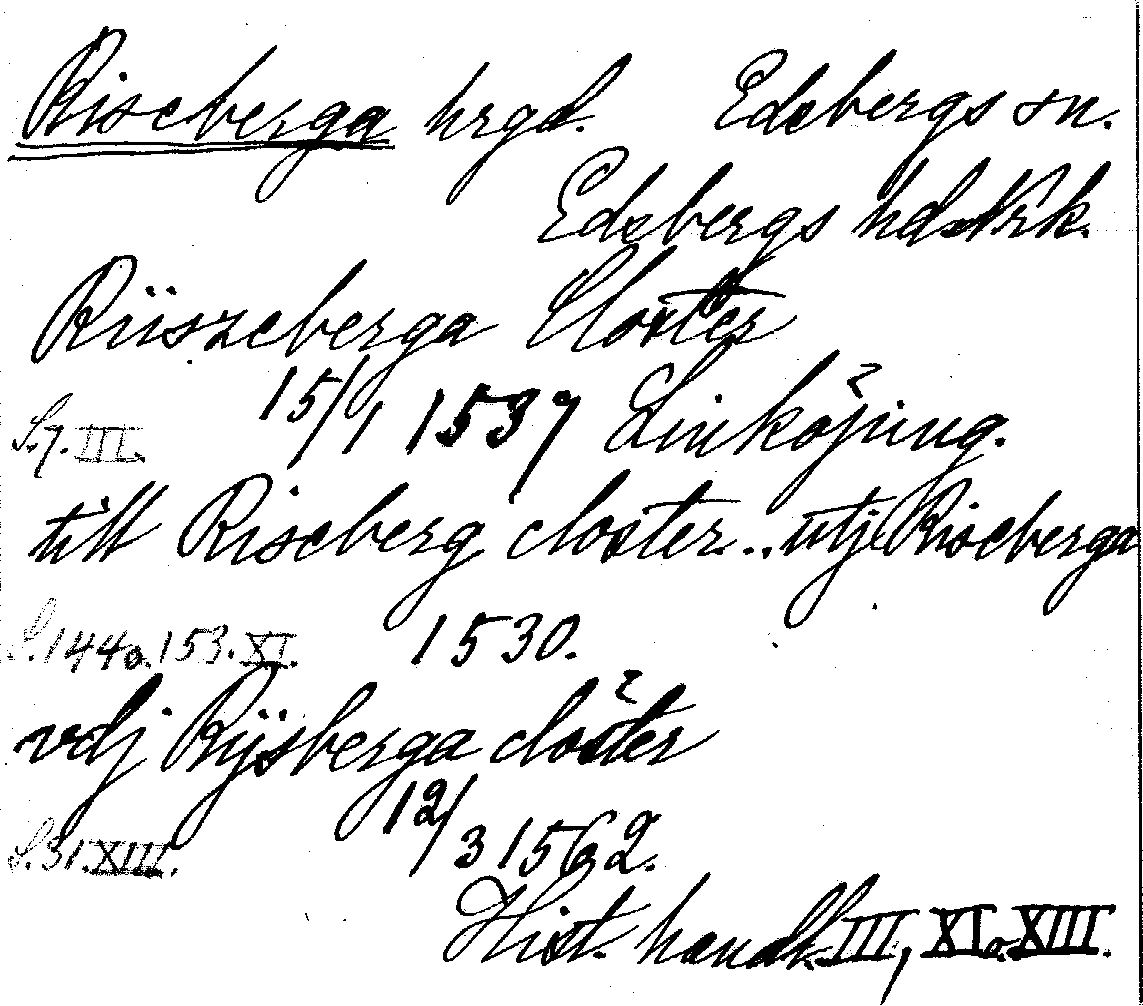 Riseberga hrgd. Edsbergs sn.
Edsbergs hd. Nrk.
Riiszeberga Closter
15/1 1537 Linköping.
S.7. III.
till Riseberg closter .. utj Riseberga
S. 144 o. 153. XI. 1530.
vdj Rijsberga clöster
12/3 1562.
S. 31. XIII.
Hist. handl. III, XI o. XIII.